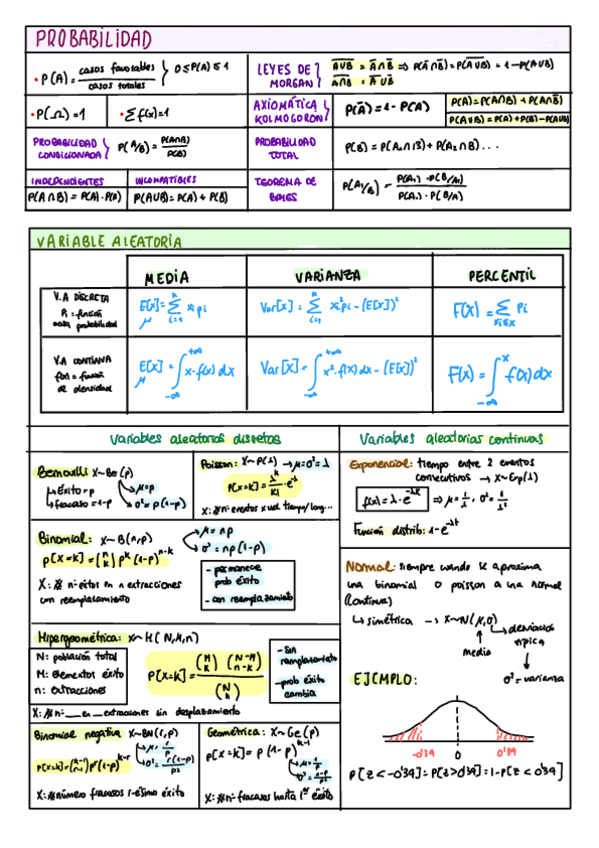 PROBABILIDAD
• P(A) = casos favorables / casos totales } 0 ≤ P(A) ≤ 1
LEYES DE MORGAN } A̅∪̅B̅ = A̅ ∩ B̅ ⇒ P(A̅ ∩ B̅) = P(A̅∪̅B̅) = 1 - P(A∪B)
A̅∩̅B̅ = A̅ ∪ B̅
• P(Ω) = 1
• Σ f(x) = 1
AXIOMÁTICA KOLMOGOROV } P(A̅) = 1 - P(A)
P(A) = P(A∩B) + P(A∩B̅)
P(A∪B) = P(A) + P(B) - P(A∩B)
PROBABILIDAD CONDICIONADA } P(A/B) = P(A∩B) / P(B)
PROBABILIDAD TOTAL
P(B) = P(A₁∩B) + P(A₂∩B) ...
INDEPENDIENTES
P(A∩B) = P(A)·P(B)
INCOMPATIBLES
P(A∪B) = P(A) + P(B)
TEOREMA DE BAYES
P(A₁/B) = P(A₁)·P(B/A₁) / P(A₁)·P(B/A₁)
VARIABLE ALEATORIA
MEDIA VARIANZA PERCENTIL
V.A DISCRETA
Pi = función
probabilidad
E[x] = Σ xi pi
μ
Var[x] = Σ xi² pi - (E[x])²
F(x) = Σ Pi
xi≤x
V.A CONTINUA
f(x) = función
de densidad
E[x] = ∫ x·f(x) dx
μ
Var[x] = ∫ x²·f(x) dx - (E[x])²
F(x) = ∫ f(x) dx
Variables aleatorias discretas
Bernoulli X~Be(p)
↳ Éxito = p
↳ fracaso = 1-p
→ μ = p
→ σ² = p(1-p)
Poisson: X~P(λ) → μ = σ² = λ
P[x=k] = λ^k / k! · e^-λ
X: # nº eventos x ud tiempo/long...
Binomial: X~B(n,p)
→ μ = np
→ σ² = np(1-p)
P[X=k] = (n k) p^k (1-p)^n-k
X: # nº éxitos en n extracciones
con reemplazamiento
- permanece
prob éxito
- con reemplazamiento
Hipergeométrica: X~H(N,M,n)
N: población total
M: elementos éxito
n: extracciones
P[X=k] = (M k) (N-M n-k) / (N n)
- Sin
remplazamiento
- prob éxito
cambia
X: # nº __ en __ extracciones sin desplazamiento
Binomial negativa X~BN(r,p)
P[X=k] = (k-1 r-1) p^r (1-p)^k-r
→ μ = r/p
→ σ² = r(1-p)/p²
X: # número fracasos r-ésimo éxito
Geométrica: X~Ge(p)
P[X=k] = p(1-p)^k-1
→ μ = 1/p
→ σ² = 1-p/p²
X: # nº fracasos hasta 1er éxito
Variables aleatorias continuas
Exponencial: tiempo entre 2 eventos
consecutivos → X~Exp(λ)
f(x) = λ·e^-λx ⇒ μ = 1/λ , σ² = 1/λ²
Función distrib: 1-e^-λt
Normal: siempre cuando se aproxima
una binomial o poisson a una normal
(continua)
↳ simétrica → X~N(μ,σ)
media
→ desviación
típica
σ² = varianza
EJEMPLO:
-0'39 0 0'39
P[z < -0'39] = P[z > 0'39] = 1 - P[z < 0'39]